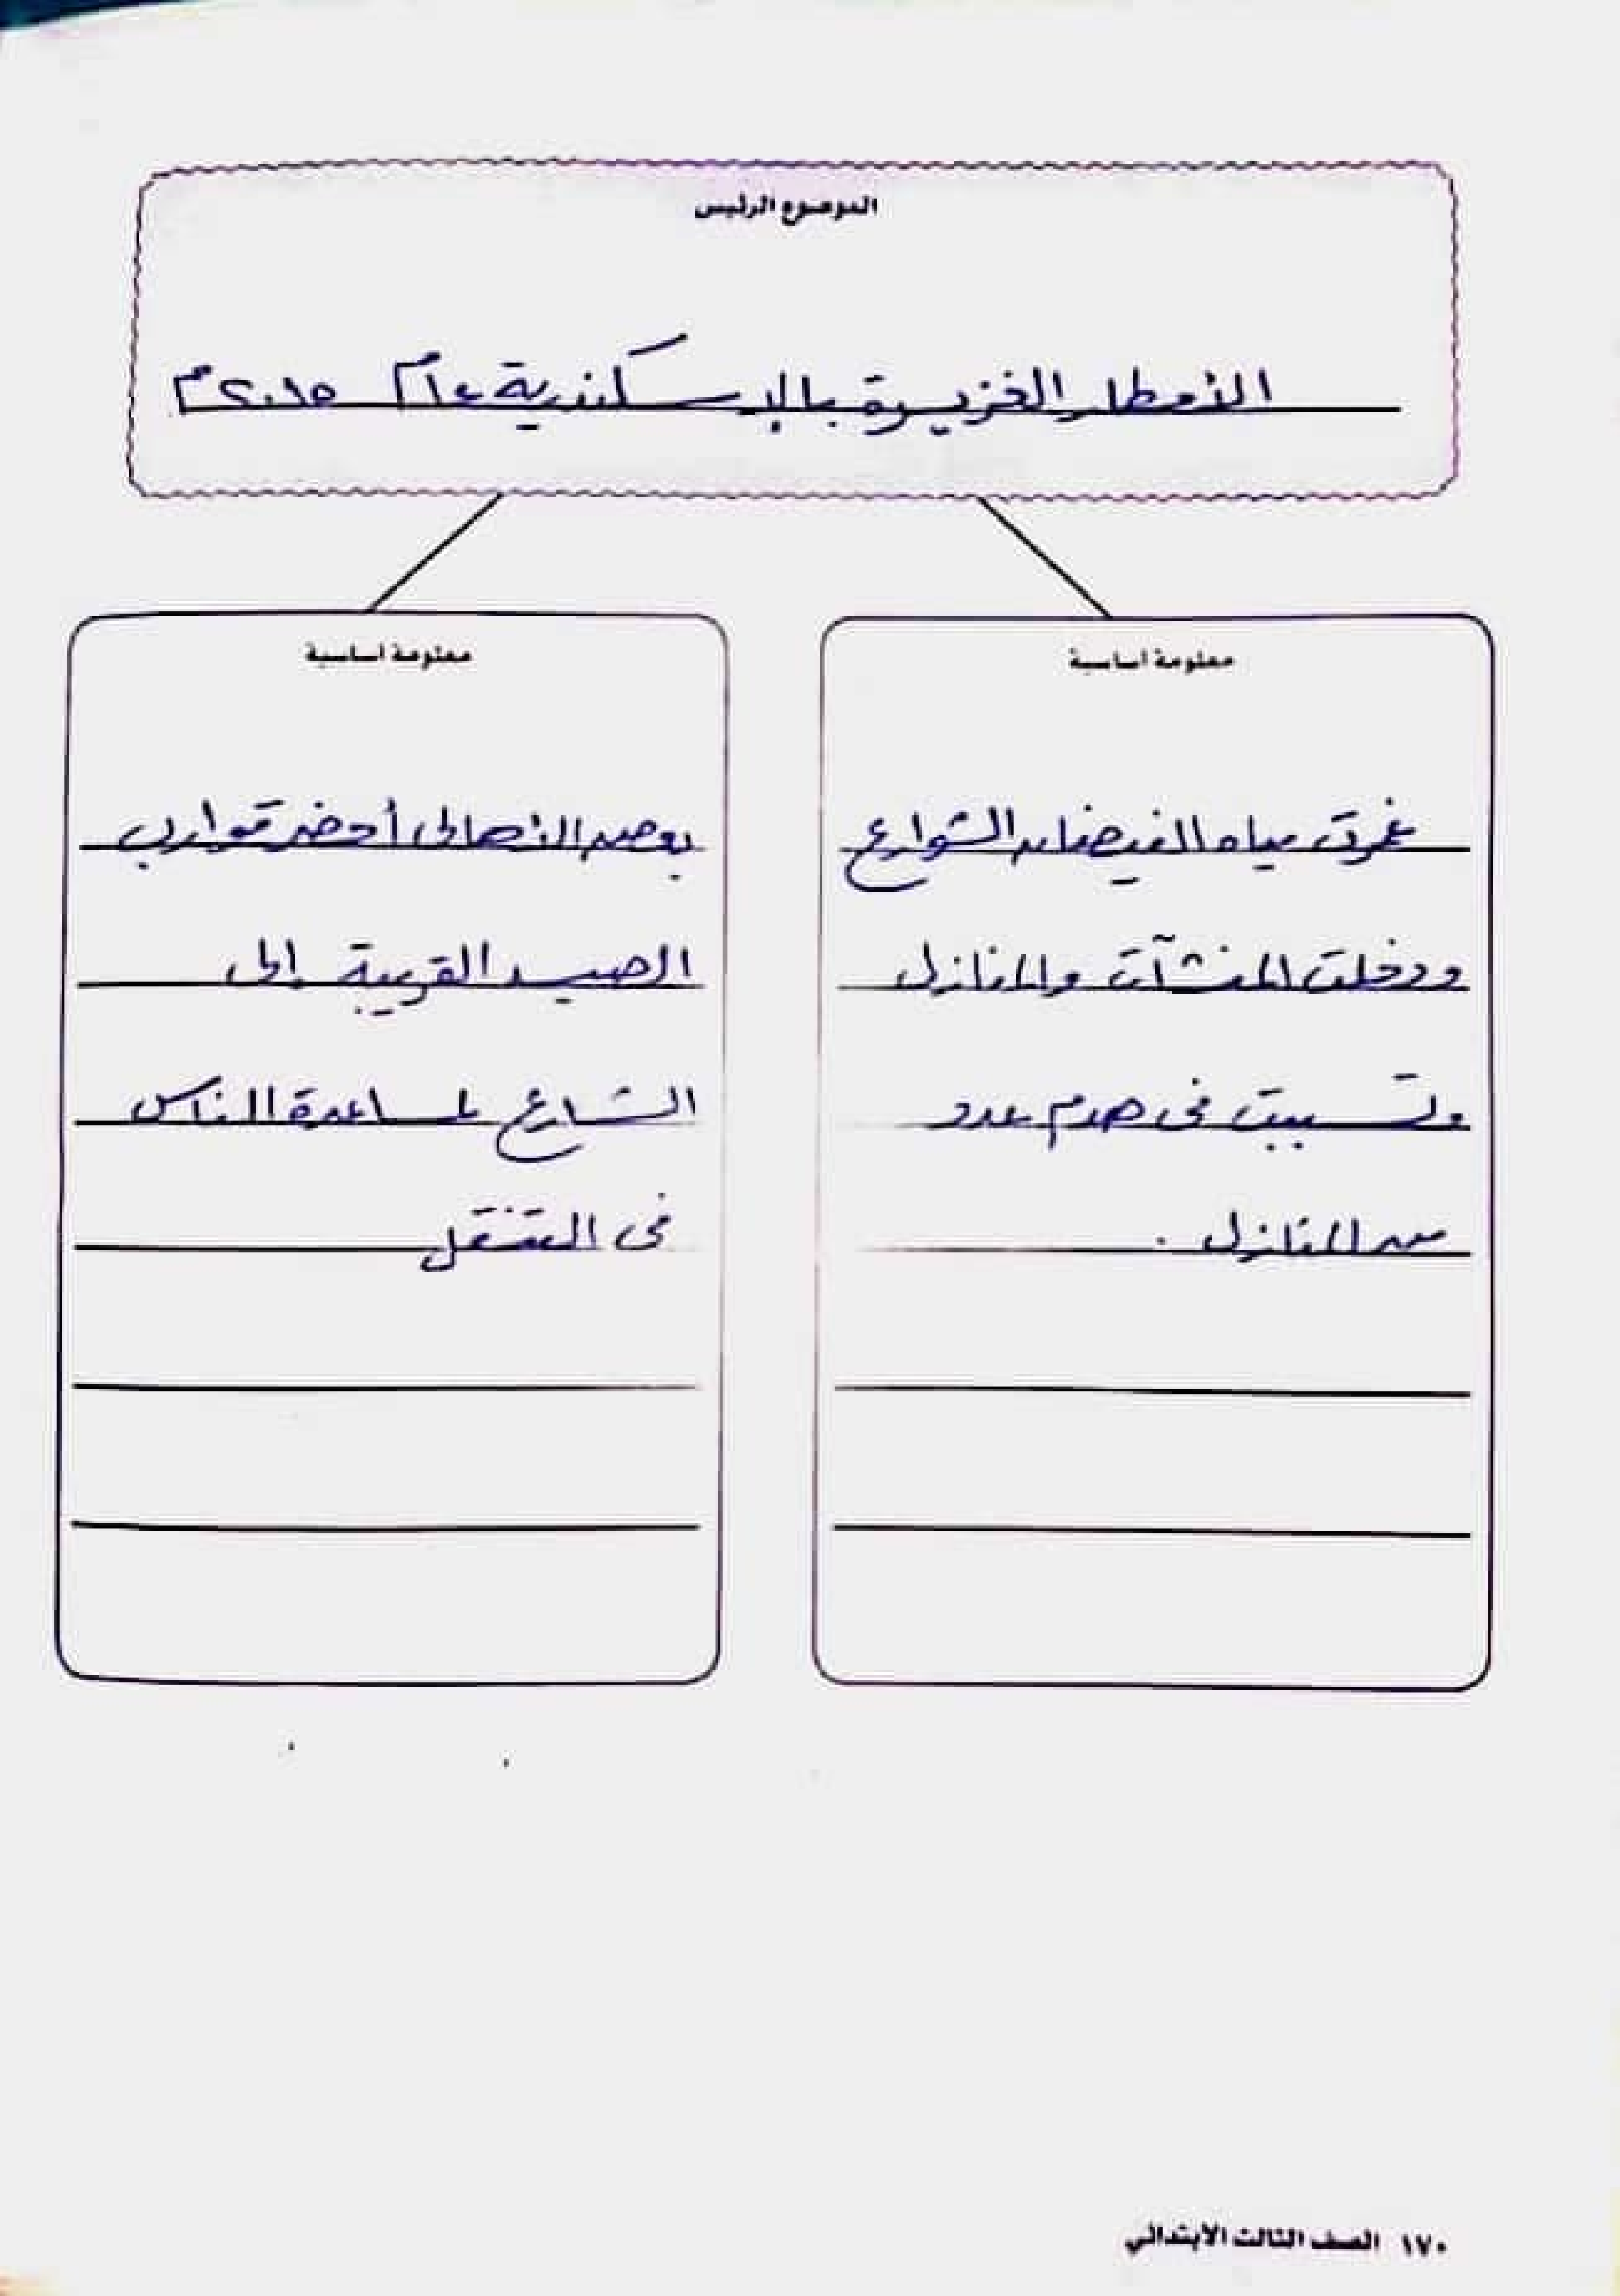 الموضوع الرئيس
الأمطار الغزيرة بالإسكندرية عام ٢٠١٥م
معلومة أساسية
غمرت مياه الفيضان الشوارع
ودخلت المنشآت والمنازل
وتسببت في هدم عدد
من المنازل .
معلومة أساسية
بعض الأهالى أحضر قوارب
الصيد القريبة إلى
الشارع لمساعدة الناس
فى التنقل
١٧٠ الصف الثالث الابتدائي